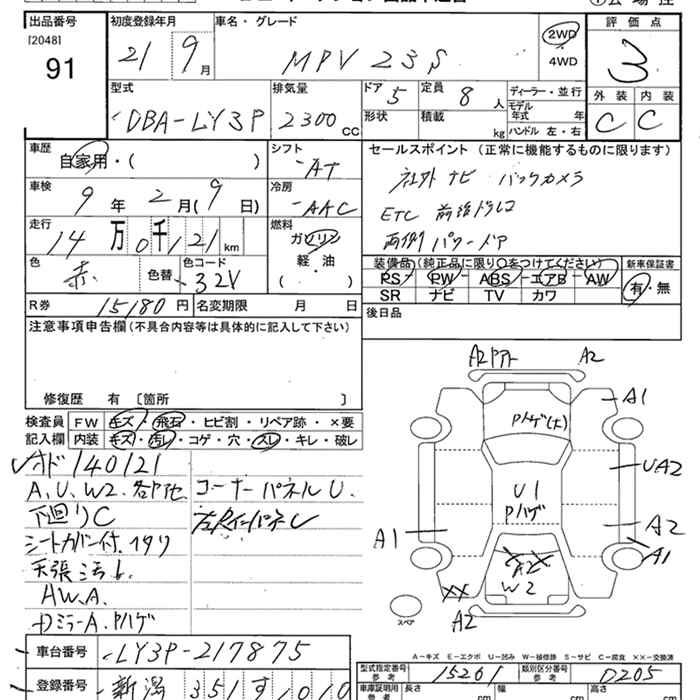 出品番号
[2048]
91
初度登録年月
21 9月
車名・グレード
MPV 23S
2WD
4WD
評価点
3
外装 内装
C C
型式
DBA-LY3P
排気量
2300CC
ドア 5
形状
定員 8人
積載 kg
ディーラー・並行
モデル年式 年
ハンドル 左・右
車歴
自家用・( )
シフト
AT
セールスポイント (正常に機能するものに限ります)
社外ナビ バックカメラ
ETC 前後ドラレコ
両側パワードア
車検
9年 2月(9日)
冷房
AAC
走行
14万0千121km
燃料
ガソリン
軽・油
( )
色
赤
色替
色コード
32V
装備品(純正品に限り〇をつけてください)
PS PW ABS エアB AW
SR ナビ TV カワ
新車保証書
有・無
R券 15180円
名変期限 月 日
後日品
注意事項申告欄(不具合内容等は具体的に記入して下さい)
修復歴 有 [箇所 ]
検査員記入欄
FW キズ・飛石・ヒビ割・リペア跡・×要
内装 キズ・汚レ・コゲ・穴・スレ・キレ・破レ
オド140121
A.U.W2.各所他
コーナーパネルU.
下廻りC
シートカバー付.
天張汚れ
HW.A.
ドミラーA.Pハゲ
A2 A2
A1
Pハゲ(大)
UA2
U1
Pハゲ
A1
A2
A1
A2
W2
XX
A2
スペア
A-キズ E-エクボ U-凹み W-補修跡 S-サビ C-腐食 ××-交換済
車台番号
LY3P-217875
登録番号
新潟 351す1010
型式指定番号
参考
15261
類別区分番号
参考
D205
車庫証明用
参考
長さ cm 幅 cm 高さ cm